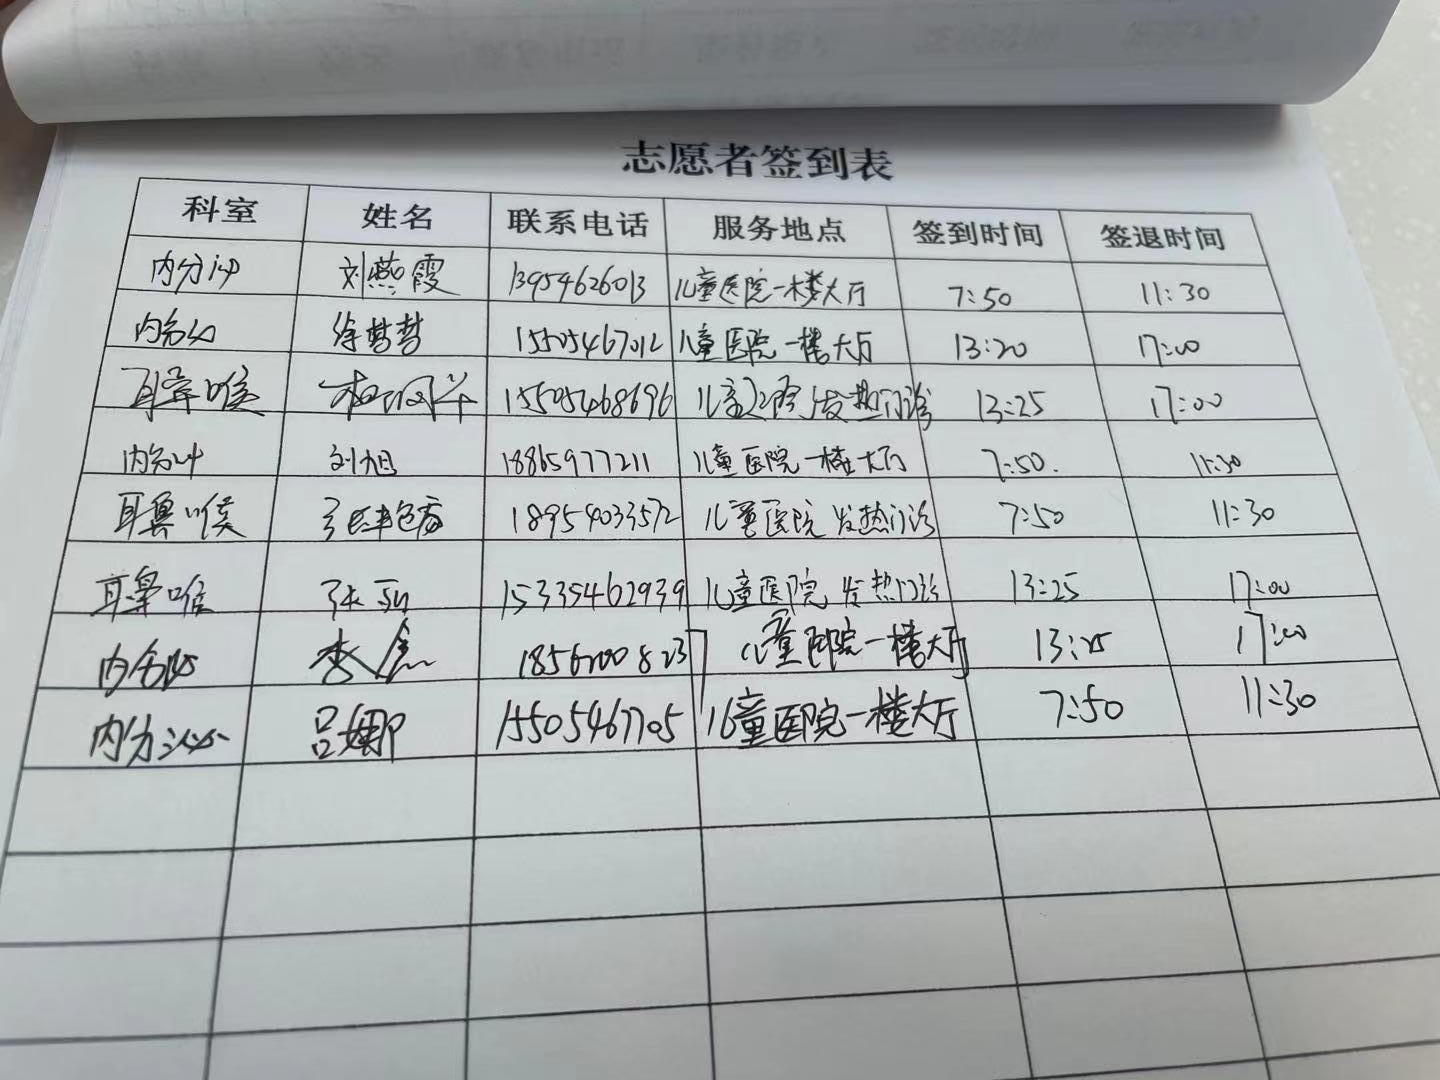 志愿者签到表
科室 姓名 联系电话 服务地点 签到时间 签退时间
内分泌 刘燕霞 13954626013 儿童医院一楼大厅 7:50 11:30
内分泌 徐梦梦 15505467012 儿童医院一楼大厅 13:20 17:00
耳鼻喉 15505468696 儿童医院发热门诊 13:25 17:00
内分泌 刘旭 18865977211 儿童医院一楼大厅 7:50. 11:30
耳鼻喉 18954033572 儿童医院 发热门诊 7:50 11:30
耳鼻喉 15335462939 儿童医院 发热门诊 13:25 17:00
内分泌 儿童医院一楼大厅 13:25 17:00
内分泌 吕娜 15505467705 儿童医院一楼大厅 7:50 11:30